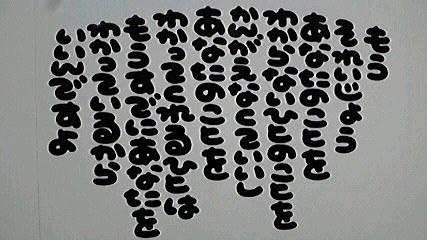 もう
それいじょう
あなたのことを
わからないひとのことを
かんがえなくていいし
あなたのことを
わかってくれるひとは
もうすでにあなたを
わかっているから
いいんですよ